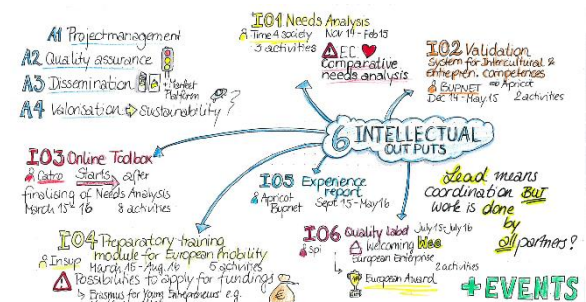 A1 Projectmanagement
A2 Quality assurance
A3 Dissemination
Market
Platform
A4 Valorisation ⇒ sustainability?
IO1 Needs Analysis
Time4society Nov 14 - Feb 15
3 activities
EC
comparative
needs analysis
IO2 Validation
System for Intercultural &
entrepren. competences
BUPNET Apricot
Dec 14 - May 15 2 activities
6 INTELLECTUAL
OUTPUTS
IO3 Online Toolbox
Catro Starts after
finalising of Needs Analysis
March 15 - 16 8 activities
IO4 Preparatory training
module for European Mobility
Insup March 15 - Aug. 16 5 activities
Possibilities to apply for fundings
↳ Erasmus for Young Entrepreneurs e.g.
€
IO5 Experience
report
Apricot
Bupnet Sept. 15 - May 16
IO6 Quality label July 15 - July 16
Spi welcoming
European Enterprise
2 activities
European Award
Lead means
coordination BUT
work is done
by
all partners?
+ EVENTS